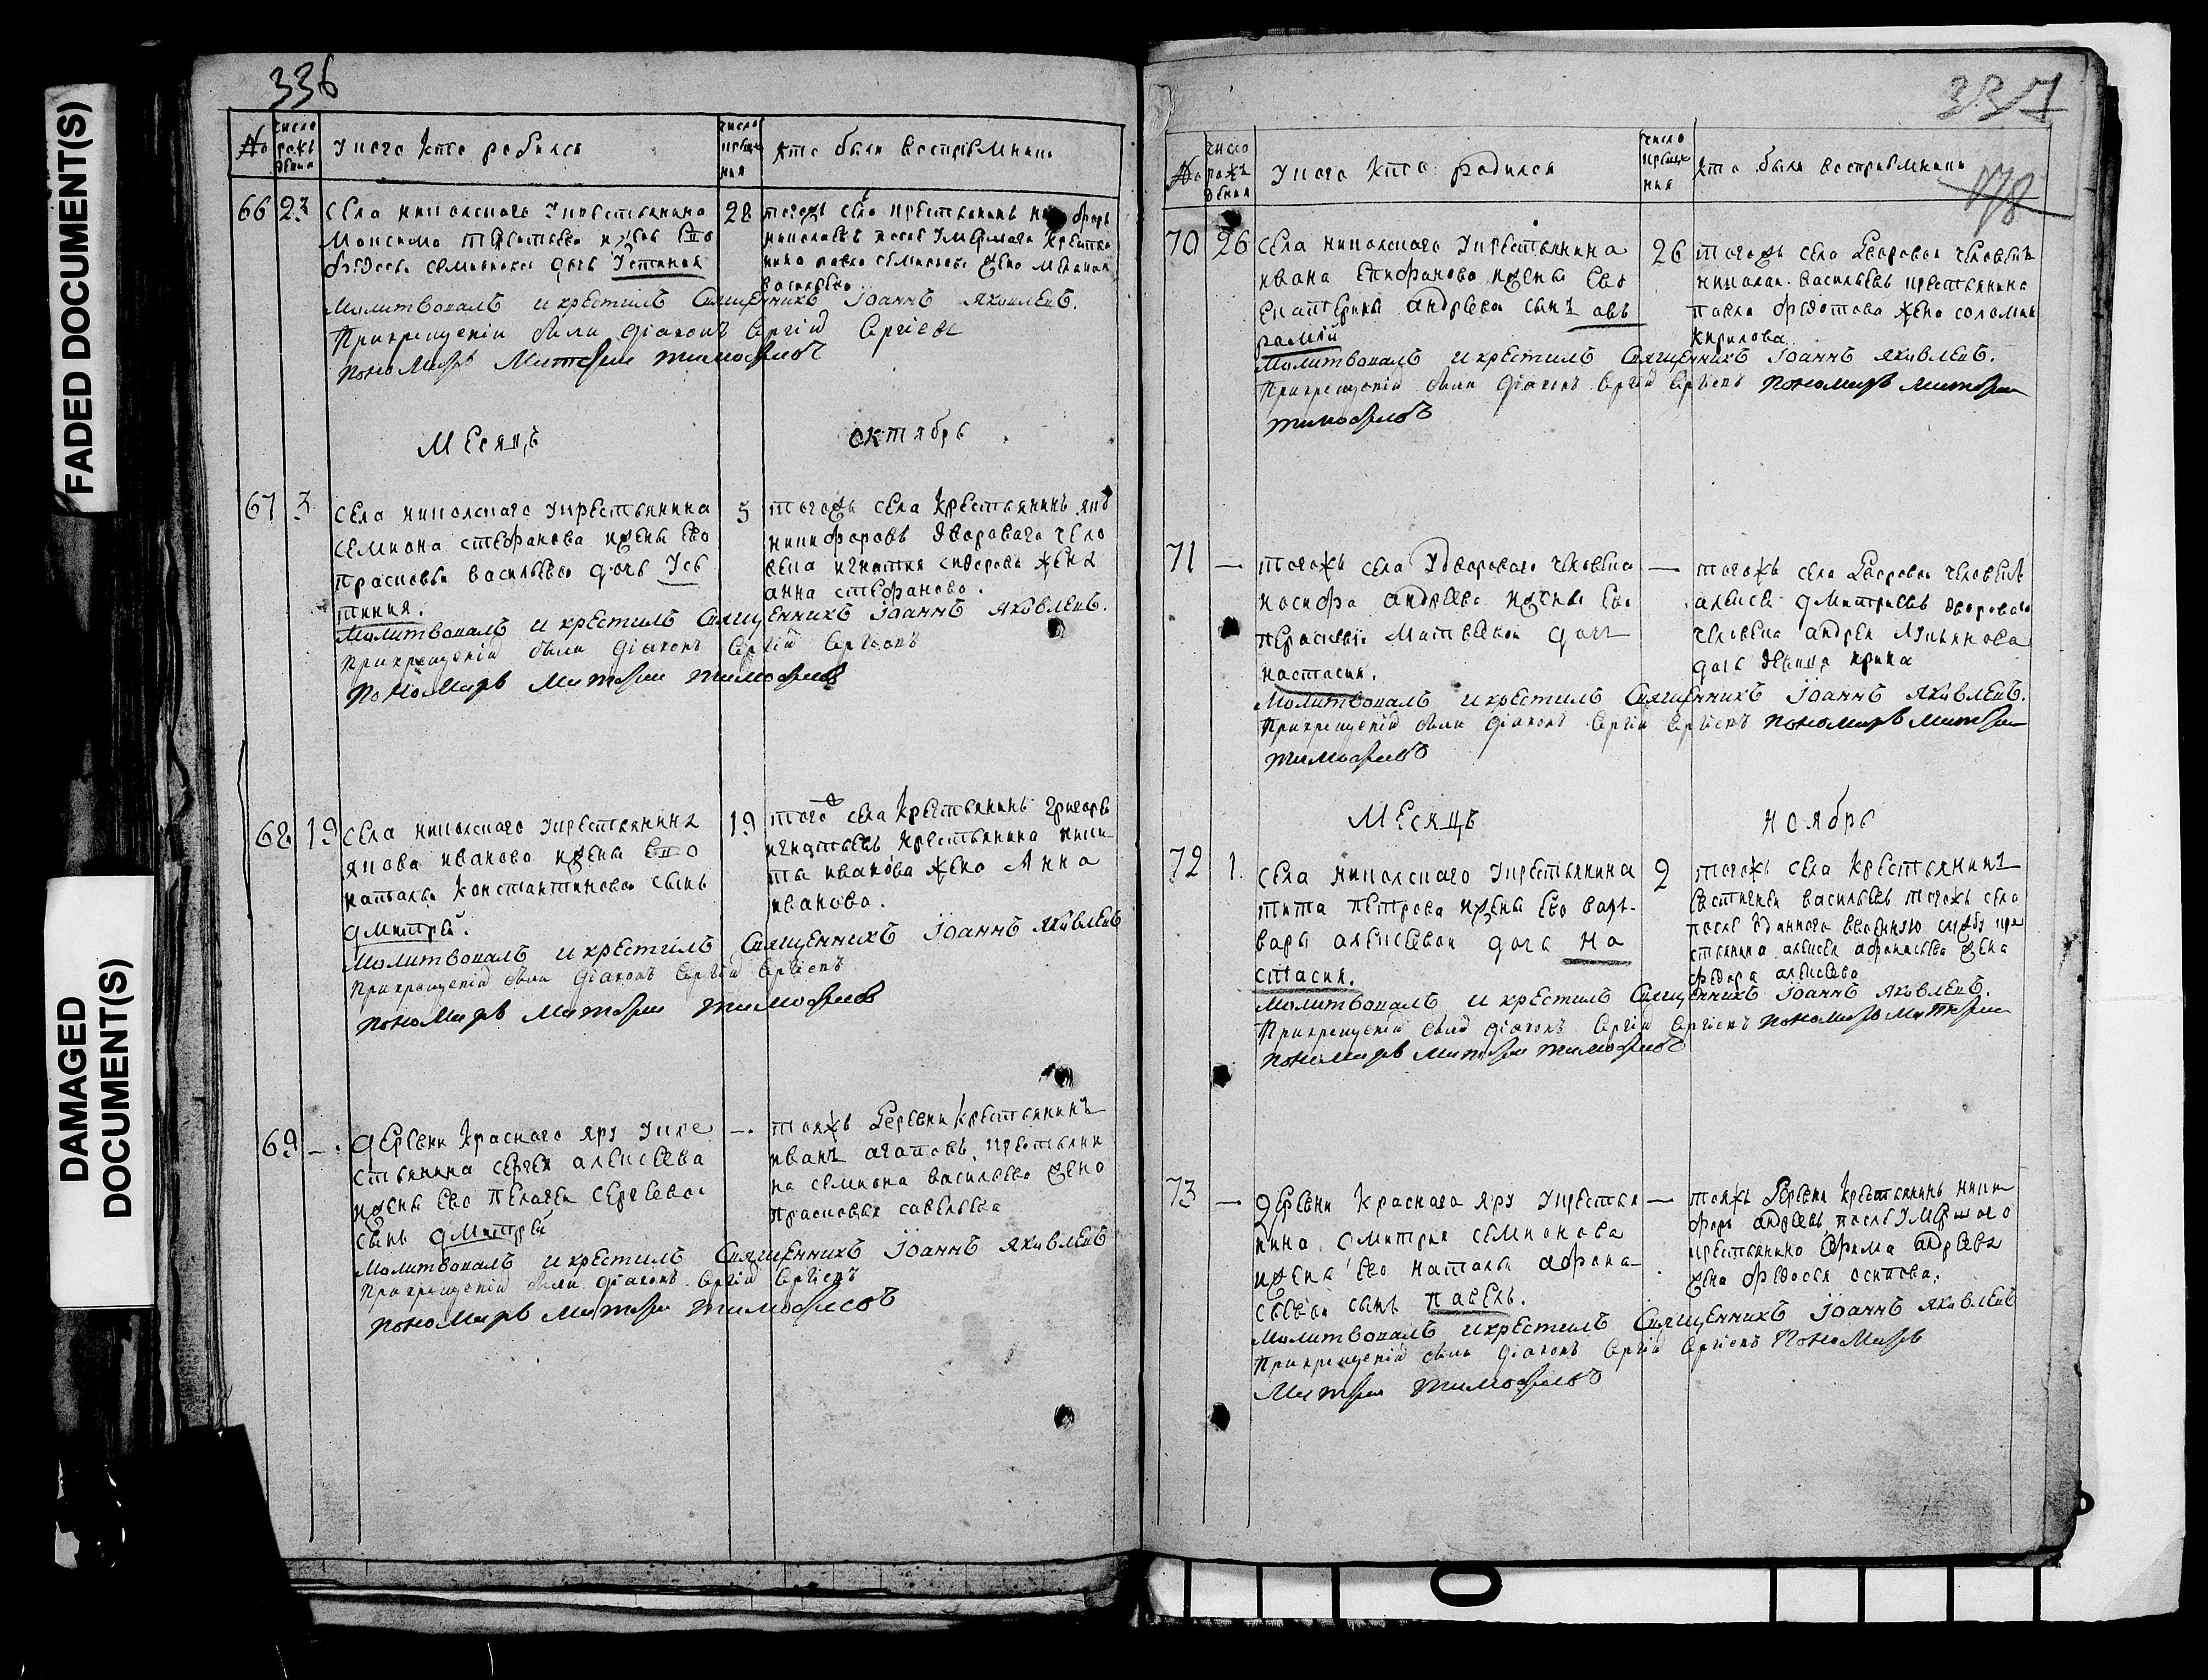 FADED DOCUMENT(S)
DAMAGED
DOCUMENT(S)
336
№
число
рожъ
дения
у кого кто родился
число
креще
ния
кто были восприемники
66 23 28
села николскаго укрестьянина
Максима
семионова дочь Устиния
тогожъ села крестьянинъ
васильева
Молитвовалъ и крестилъ Священникъ Iоаннъ Яковлевъ.
При крещенiи были дiаконъ Сергiй Сергiевъ
пономарь Митрей тимофеевъ
Месяцъ октябрь
67 3 5
села николскаго укрестьянина
семиона стефанова ижены ево
прасковьи васильевы дочь Усъ
тиния.
тогожъ села Крестьянинъ яковъ
никифоровъ двороваго чело
века игнатия сидорова жена
анна стефанова.
Молитвовалъ и крестилъ Священникъ Iоаннъ Яковлевъ.
При крещенiи были дiаконъ Сергiй Сергiевъ
пономарь Митрей тимофеевъ
68 19 19
села николскаго укрестьянина
якова иванова ижены ево
натальи константиновы сынъ
дмитрей.
того села Крестьянинъ григорей
игнатьевъ крестьянина ники
ты иванова жена Анна
иванова.
Молитвовалъ и крестилъ Священникъ Iоаннъ Яковлевъ
При крещенiи были дiаконъ Сергiй Сергiевъ
пономарь Митрей тимофеевъ
69 — —
деревни Краснаго яру укре
стьянина сергея алексеева
ижены ево пелагеи сергеевой
сынъ дмитрей
тояжъ деревни крестьянинъ
иванъ агаповъ, крестьяни
на семиона васильева жена
прасковья савельева
Молитвовалъ и крестилъ Священникъ Iоаннъ Яковлевъ
При крещенiи были дiаконъ Сергiй Сергiевъ
пономарь Митрей тимофеевъ
337
178
№
число
рожъ
дения
у кого кто родился
число
креще
ния
кто были восприемники
70 26 26
села николскаго укрестьянина
ивана епифанова ижены ево
екатерины андреевы сынъ авъ
рамiй
тогожъ села дворовой человекъ
николай васильевъ крестьянина
павла федотова жена
кирилова
Молитвовалъ и крестилъ Священникъ Iоаннъ Яковлевъ.
При крещенiи были дiаконъ Сергiй Сергiевъ пономарь митрей
тимофеевъ
71 — —
тогожъ села удвороваго человека
иосифа андреева ижены ево
парасковiи Матвеевой дочь
настасия.
тогожъ села дворовой человекъ
алексей дмитриевъ двороваго
человека андрея лукьянова
дочь девица ирина
Молитвовалъ и крестилъ Священникъ Iоаннъ Яковлевъ.
При крещенiи были дiаконъ Сергiй Сергiевъ пономарь митрей
тимофеевъ
Месяцъ ноябрь
72 1. 2
села николскаго укрестьянина
тита петрова ижены ево вар
вары алексеевой дочь на
стасия.
тогожъ села крестьянинъ
евстигней васильевъ тогожъ села
после зданнаго ввоенную службу кре
стьянина алексея афанасьева жена
федора алексеева
Молитвовалъ и крестилъ Священникъ Iоаннъ Яковлевъ.
При крещенiи были дiаконъ Сергiй Сергiевъ пономарь митрей
пономарь митрей тимофеевъ
73 — —
деревни Краснаго яру укрестья
нина дмитрия семионова
ижены ево натальи афана
сьевой сынъ павелъ.
тояжъ деревни крестьянинъ ники
форъ андреевъ после умершаго
крестьянина ефима андреева
жена федосья осипова.
Молитвовалъ и крестилъ Священникъ Iоаннъ Яковлевъ
При крещенiи были дiаконъ Сергiй Сергiевъ пономарь
Митрей тимофеевъ